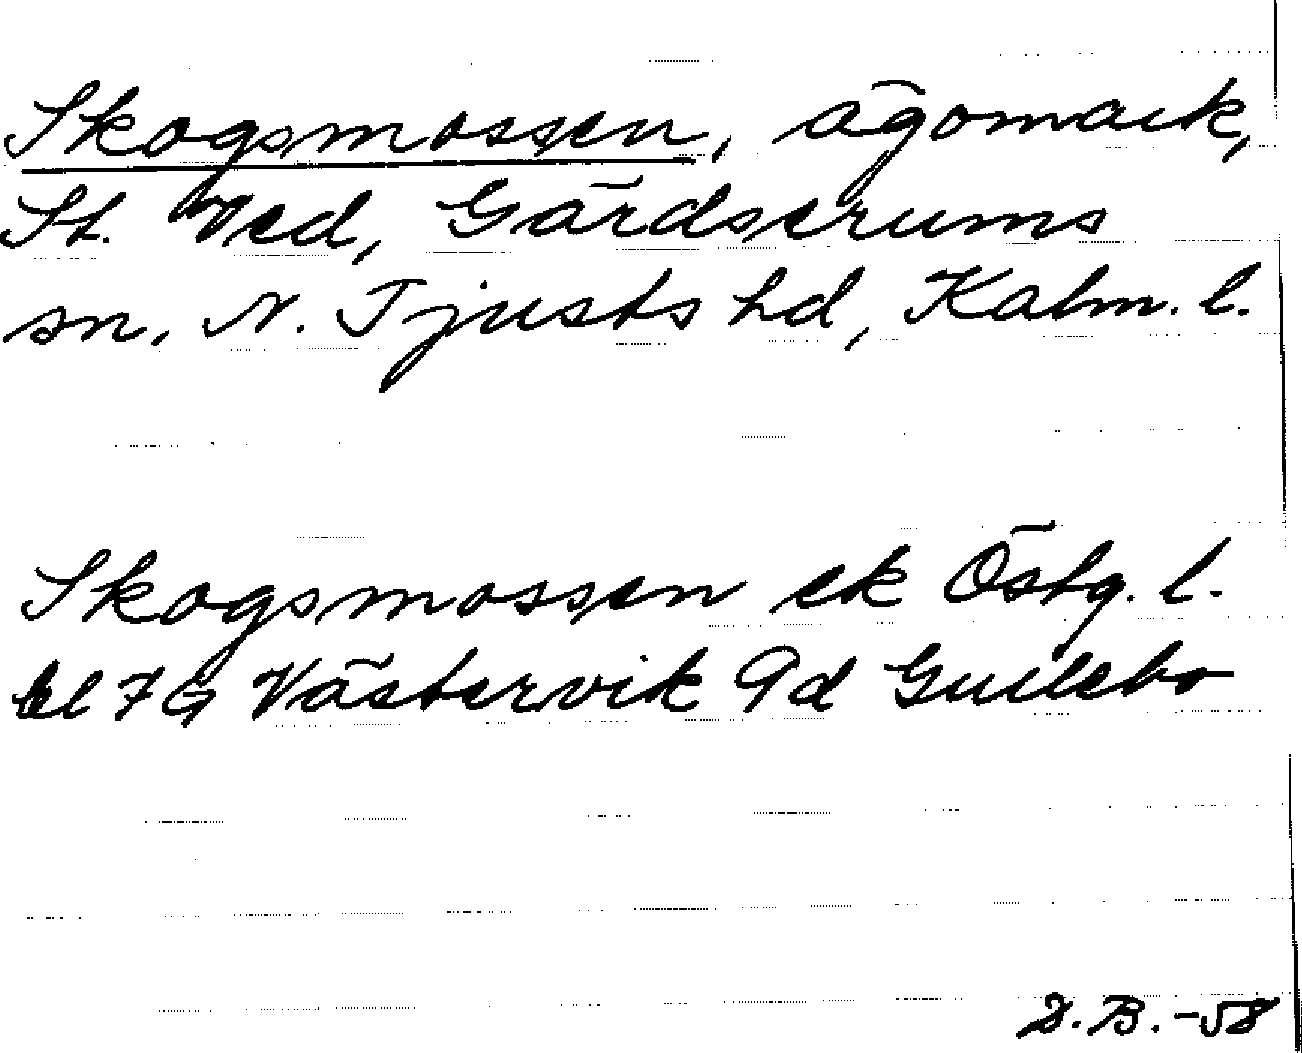 Skogsmossen, ägomark,
St. Ved, Gärdserums
sn, N. Tjusts hd, Kalm. l.
Skogsmossen ek Östg. l.
bl 7 G Västervik 9d Gullebo
D.B.-58